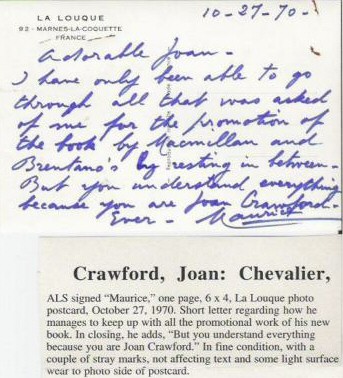 LA LOUQUE
92 - MARNES-LA-COQUETTE
FRANCE
10-27-70-
Adorable Joan -
I have only been able to go
through all that was asked
of me for the promotion of
the book by Macmillan and
Brentano's by resting in between -
But you understand everything
because you are Joan Crawford -
Ever - Maurice
Crawford, Joan: Chevalier,
ALS signed “Maurice,” one page, 6 x 4, La Louque photo
postcard, October 27, 1970. Short letter regarding how he
manages to keep up with all the promotional work of his new
book. In closing, he adds, “But you understand everything
because you are Joan Crawford.” In fine condition, with a
couple of stray marks, not affecting text and some light surface
wear to photo side of postcard.